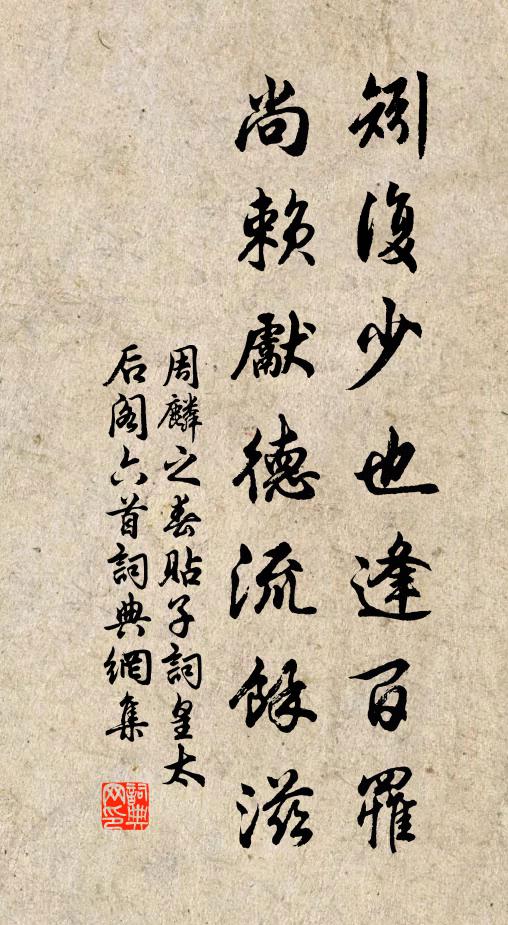 矧復少也逢百罹
尚賴獻德流餘滋
周麟之春貼子詞皇太
后阁六首詞典網集
詞典网印